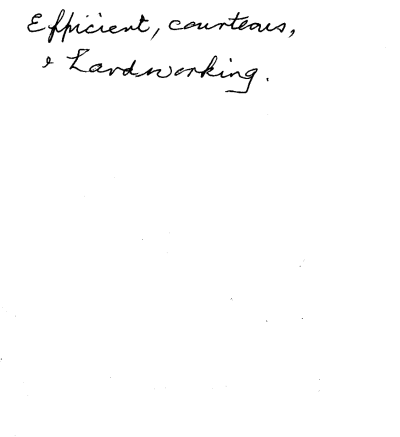 Efficient, courteous,
& Hardworking.